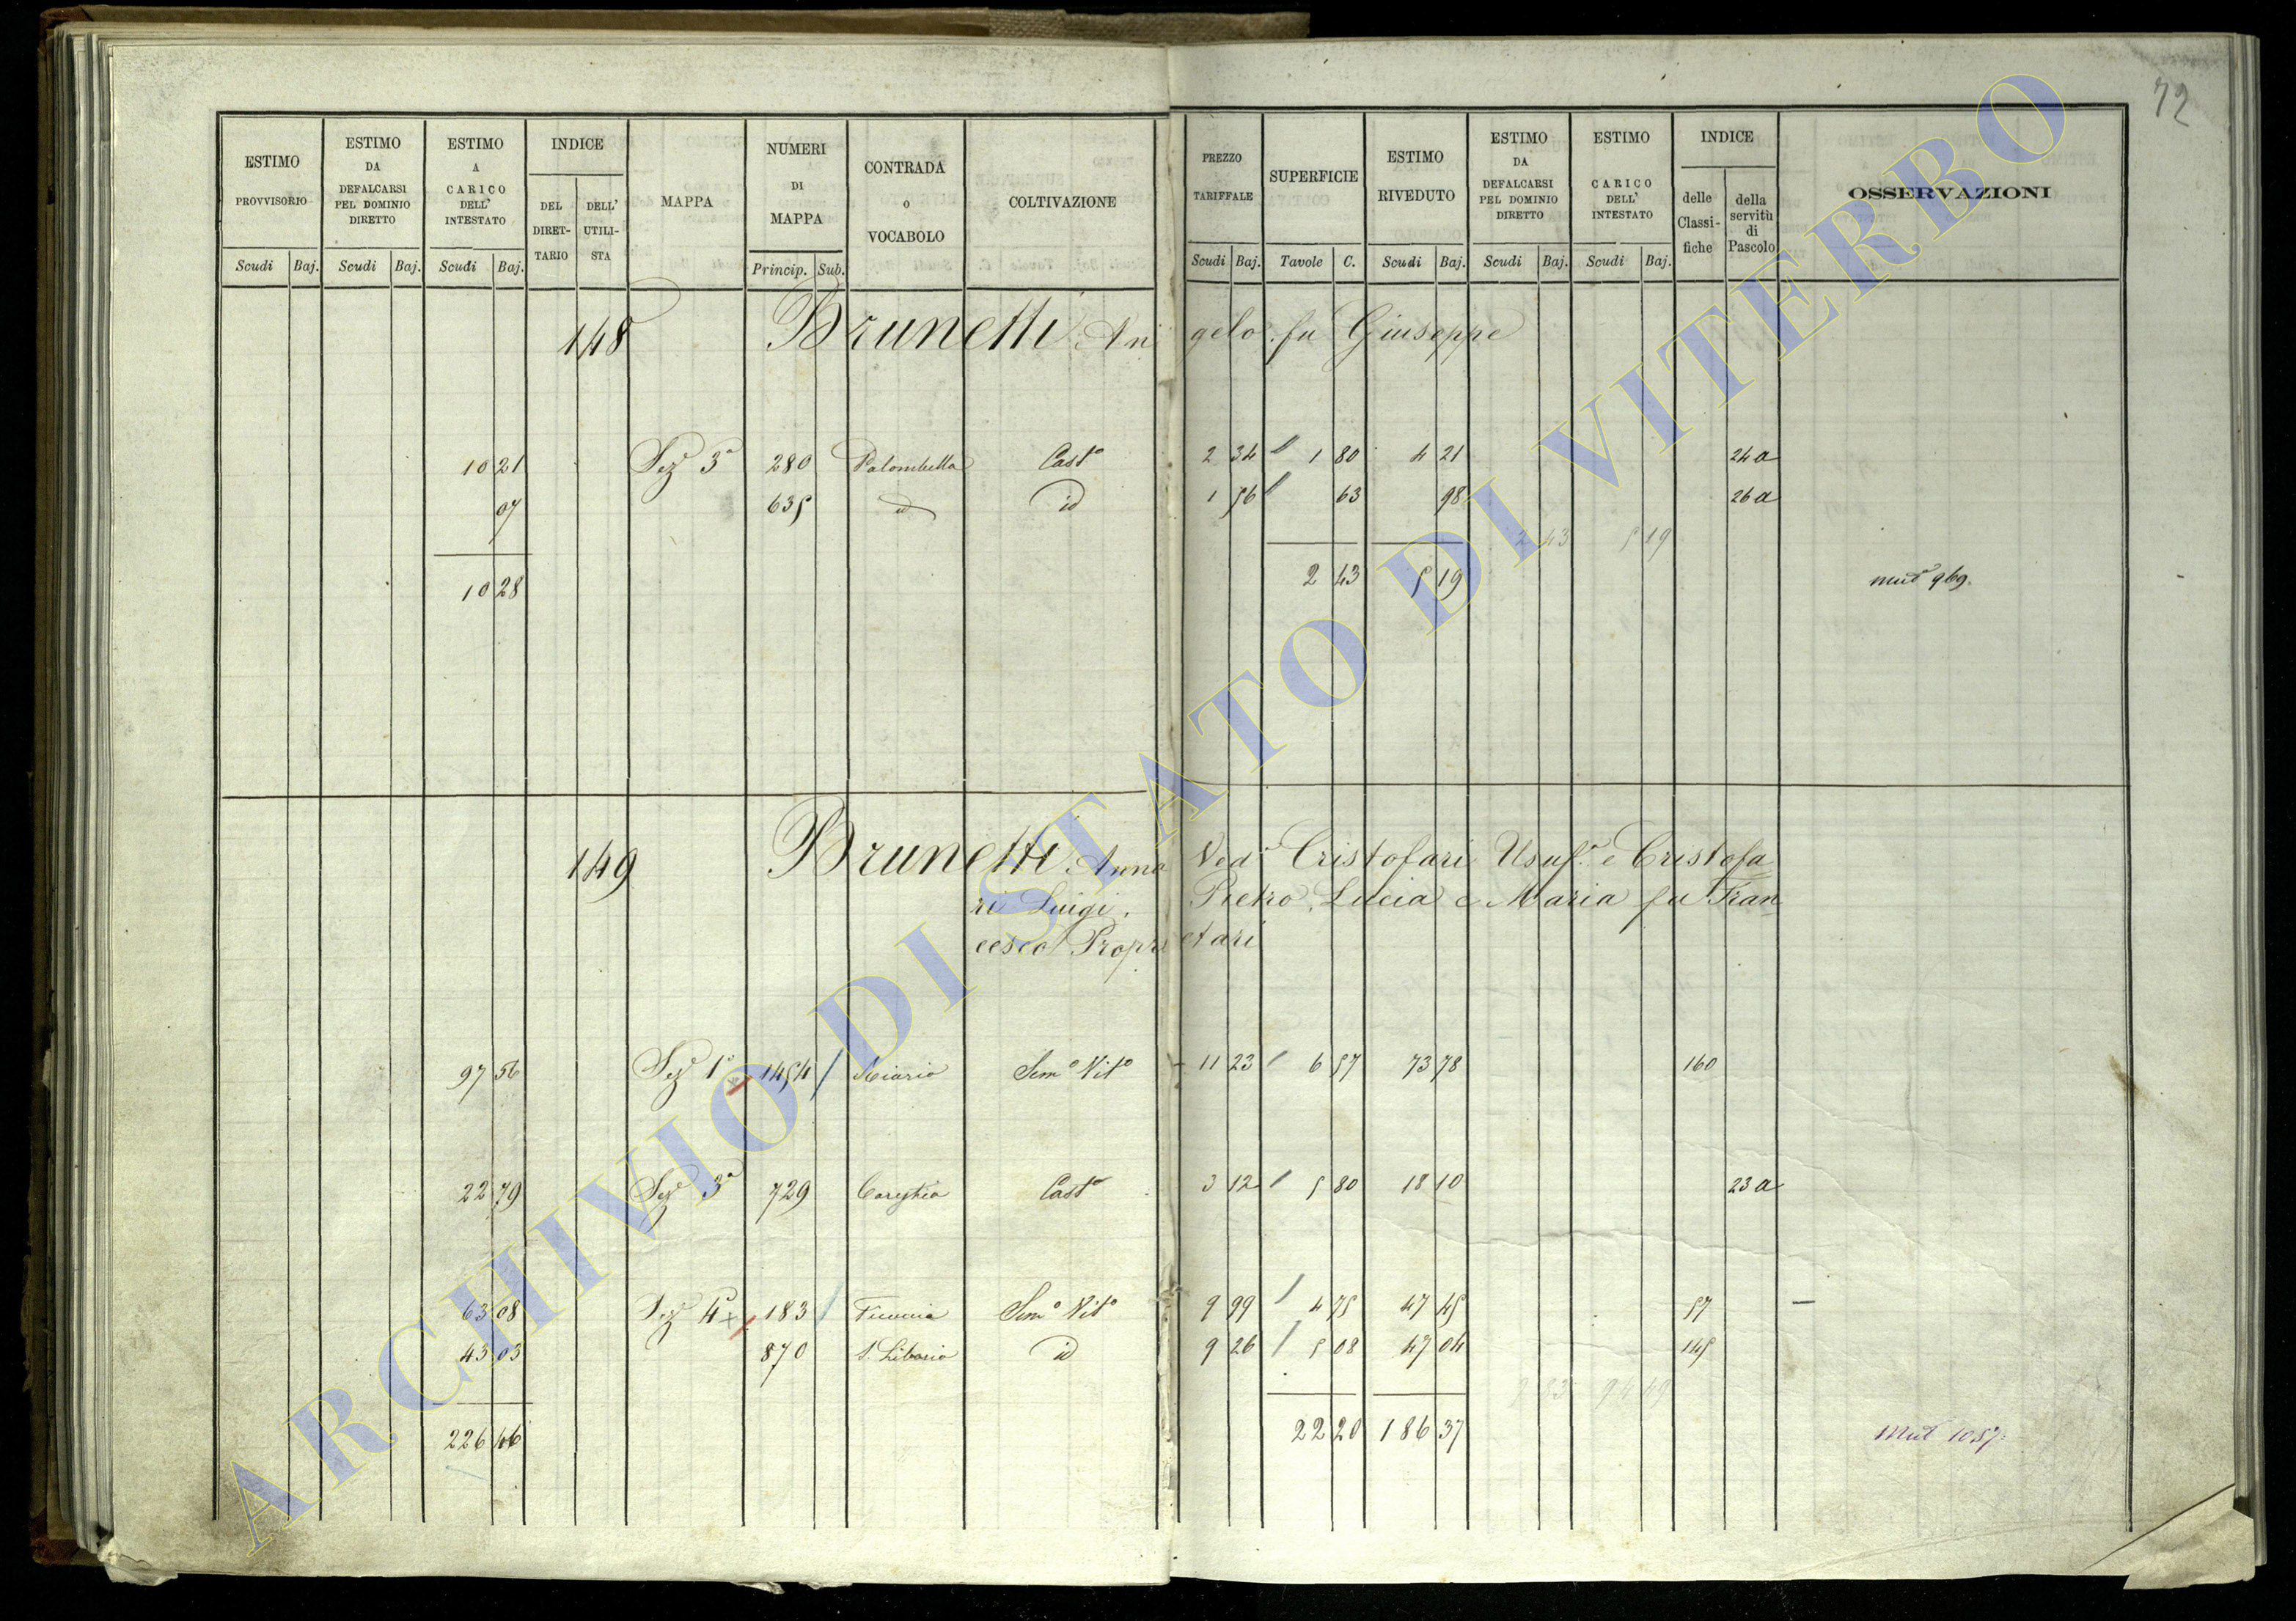 72
ESTIMO PROVVISORIO Scudi Baj.
ESTIMO DA DEFALCARSI PEL DOMINIO DIRETTO Scudi Baj.
ESTIMO A CARICO DELL' INTESTATO Scudi Baj.
INDICE DEL DIRETTARIO DELL' UTILISTA
MAPPA
NUMERI DI MAPPA Princip. Sub.
CONTRADA O VOCABOLO
COLTIVAZIONE
PREZZO TARIFFALE Scudi Baj.
SUPERFICIE Tavole C.
ESTIMO RIVEDUTO Scudi Baj.
ESTIMO DA DEFALCARSI PEL DOMINIO DIRETTO Scudi Baj.
ESTIMO A CARICO DELL' INTESTATO Scudi Baj.
INDICE delle Classifiche della servitù di Pascolo
OSSERVAZIONI
148 Brunetti Angelo fu Giuseppe
10 21 Sez.e 3a 280 Palombella Casto 2 34 1 80 4 21 24 a
07 635 id id 1 56 63 98 26 a
2 43 5 19
10 28 2 43 5 19 mut.a 969.
149 Brunetti Anna Ved.a Cristofari Usuf.a e Cristofa
ri Luigi, Pietro, Lucia e Maria fu Fran
cesco Proprietari
97 56 Sez.e 1a 1454 Riario Sem.o Vit.o 11 23 6 57 73 78 160
22 79 Sez.e 3a 729 Casto 3 12 5 80 18 10 23 a
63 08 Sez.e 4a 183 Sem.o Vit.o 9 99 4 75 47 45 57
43 03 870 S. Liborio id 9 26 5 08 47 04 145
226 46 22 20 186 37 Mut 1057.
ARCHIVIO DI STATO DI VITERBO